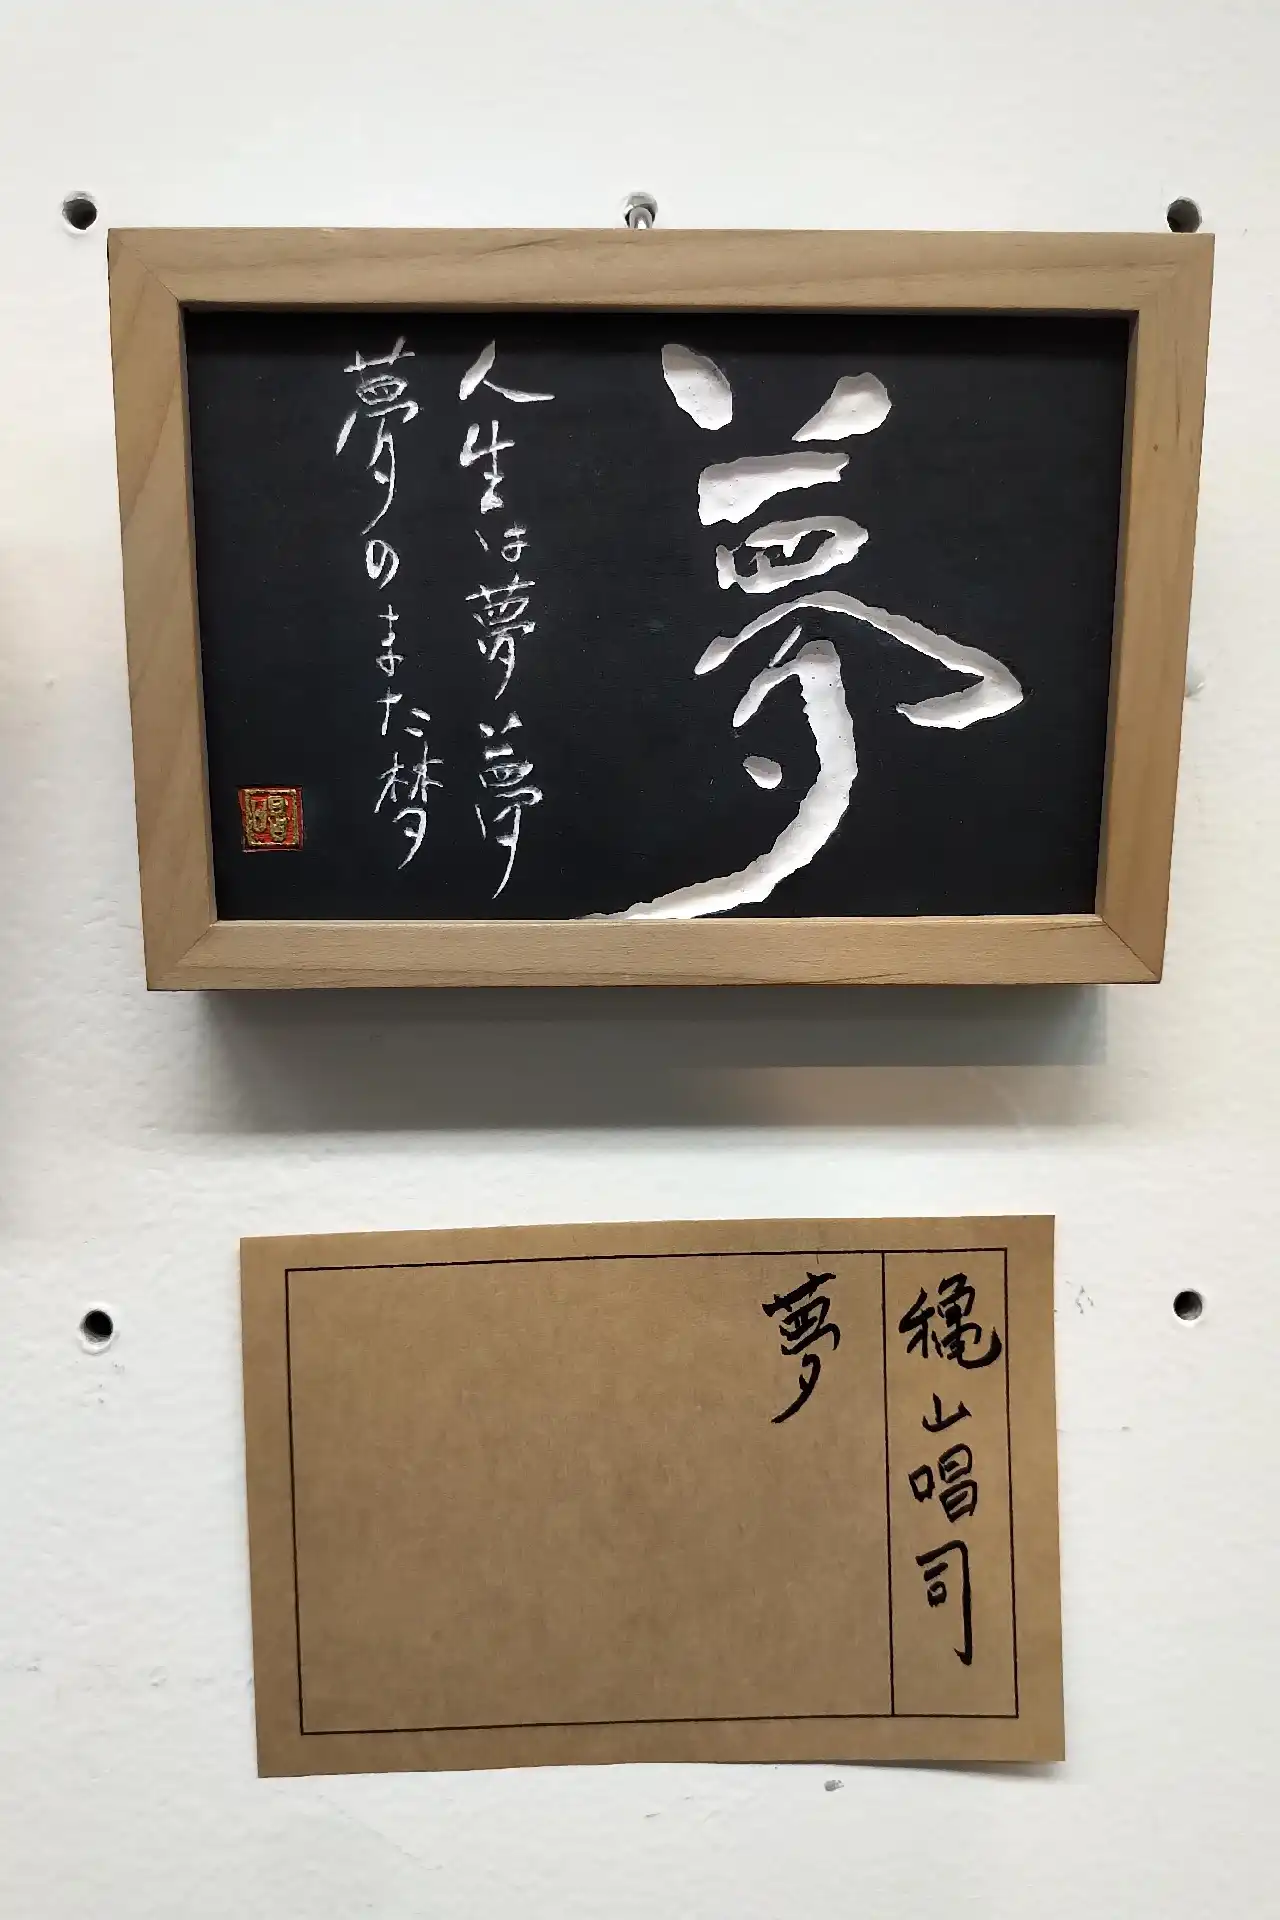 夢
人生は夢夢
夢のまた梦
唱
穐山唱司
夢